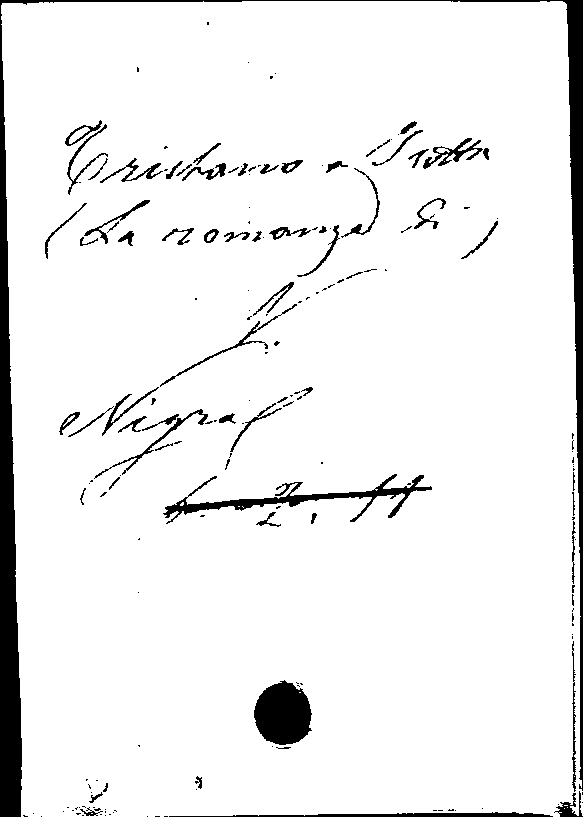 Tristano e Isotta
(La romanza di)
V.
Nigra